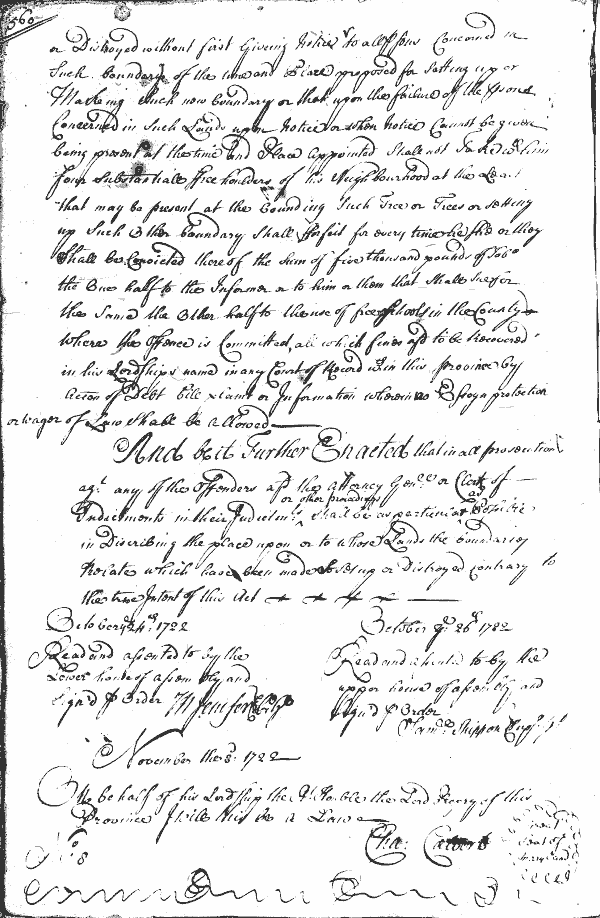 560
or Distroyed without first Giveing Notice to all psons Concerned in
Such boundary of the time and Place proposed for Setting up or
Marking Such new boundary or that upon the failure of the psons
Concerned in Such Lands upon Notice or when Notice Cannot be given
being present at the time and Place Appointed Shall not Take wth him
four Substantiall freehoulders of his Neighbourhood at the Least
that may be present at the bounding Such Tree or Trees or setting
up Such Other boundary Shall forfeit for every time he she or they
Shall be Convicted thereof the Sum of five thousand pounds of Tobo
the One half to the Informer or to him or them that Shall Suffer
the Same the Other half to the use of free Schools in the County
where the Offence is Committed, all which fines afd to be Recovered
in his Lordships name in any Court of Record wthin this province by
Action of Debt bill plaint or Information wherein no Essoyn protection
or wager of Law Shall be allowed
And be it Further Enacted that in all prosecutions
agt any of the Offenders afd the Attorney Genll or Clerk of
or other proceedings
Indictments in their Indictmts shall be as particular as Possible
in Discribing the place upon or to whose Lands the boundarys
Relate which have been made set up or Distroyed Contrary to
the true Intent of this Act
October ye 24th 1722
Read and assented to by the
Lower house of assembly and
Sign'd p Order
October ye 26th 1722
Read and assented to by the
upper house of assembly and
Sign'd p Order
Saml Skippon
November the 3d 1722
On behalf of his Lordship the Rt Honble the Lord Propry of this
Province I will this be a Law
Cha: Calvert
No 8
great
Seal of
Maryland